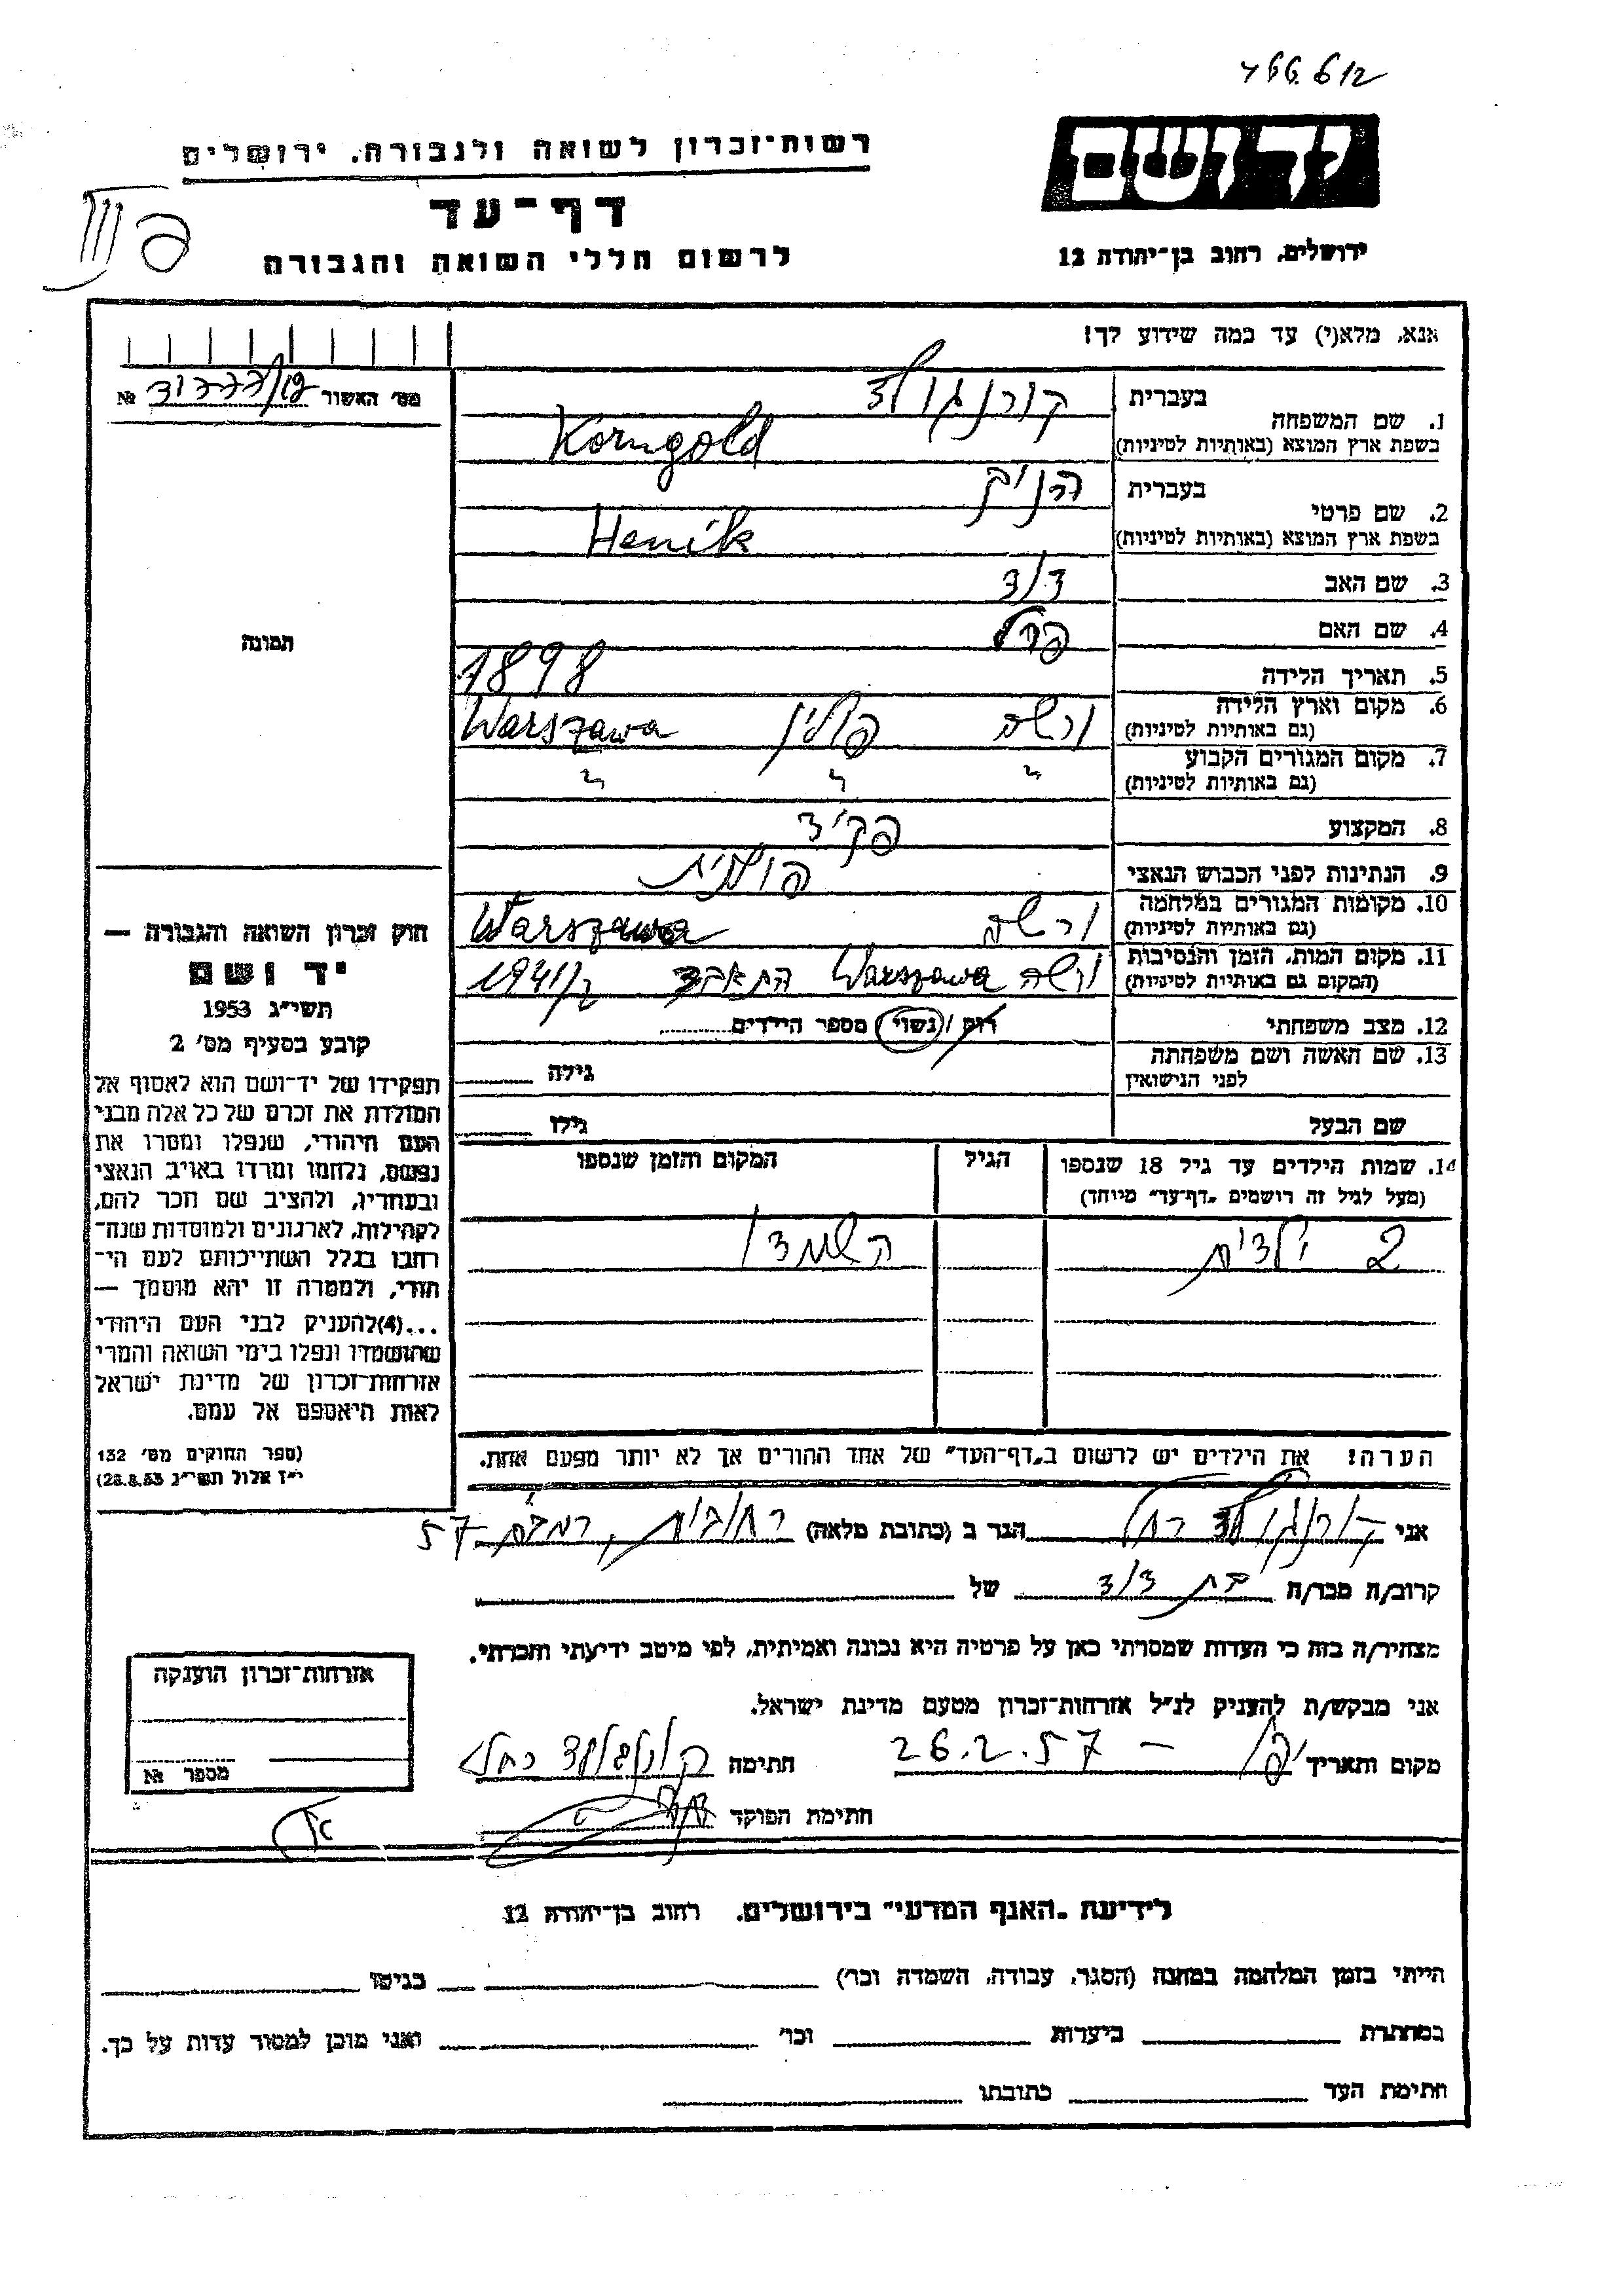 יד ושם
ירושלים, רחוב בן־יהודה 12
רשות־זכרון לשואה ולגבורה, ירושלים
דף־עד
לרשום חללי השואה והגבורה
אנא, מלא(י) עד כמה שידוע לך!
מס' האשור №
1. שם המשפחה בעברית קורנגולד
בשפת ארץ המוצא (באותיות לטיניות) Korngold
2. שם פרטי בעברית הניק
בשפת ארץ המוצא (באותיות לטיניות) Henik
3. שם האב דוד
4. שם האם פרל
5. תאריך הלידה 1898
6. מקום וארץ הלידה ורשה פולין Warszawa
(גם באותיות לטיניות)
7. מקום המגורים הקבוע " " "
(גם באותיות לטיניות)
8. המקצוע פקיד
9. הנתינות לפני הכבוש הנאצי פולנית
10. מקומות המגורים במלחמה ורשה Warszawa
(גם באותיות לטיניות)
11. מקום המות, הזמן והנסיבות ורשה Warszawa התאבד 1941
(המקום גם באותיות לטיניות)
12. מצב משפחתי רווק / נשוי / מספר הילדים
13. שם האשה ושם משפחתה גילה
לפני הנישואין
שם הבעל גילו
14. שמות הילדים עד גיל 18 שנספו הגיל המקום והזמן שנספו
(מעל לגיל זה רושמים "דף־עד" מיוחד)
2 ילדות השמדו
תמונה
חוק זכרון השואה והגבורה —
יד ושם
תשי"ג 1953
קובע בסעיף מס' 2
תפקידו של יד־ושם הוא לאסוף אל
המולדת את זכרם של כל אלה מבני
העם היהודי, שנפלו ומסרו את
נפשם, נלחמו ומרדו באויב הנאצי
ובעוזריו, ולהציב שם וזכר להם,
לקהילות, לארגונים ולמוסדות שנח־
רבו בגלל השתייכותם לעם הי־
הודי, ולמטרה זו יהא מוסמך —
...(4) להעניק לבני העם היהודי
שהושמדו ונפלו בימי השואה והמרי
אזרחות־זכרון של מדינת ישראל
לאות היאספם אל עמם.
(ספר החוקים מס' 132
י"ז אלול תשי"ג 28.8.53)
הערה! את הילדים יש לרשום ב"דף־העד" של אחד ההורים אך לא יותר מפעם אחת.
אני קורנגולד רחל הגר ב (כתובת מלאה) רחובות, 57
קרוב/ה מכר/ה בת דוד של
מצהיר/ה בזה כי העדות שמסרתי כאן על פרטיה היא נכונה ואמיתית, לפי מיטב ידיעתי והכרתי.
אני מבקש/ת להעניק לנ"ל אזרחות־זכרון מטעם מדינת ישראל.
מקום ותאריך 26.2.57 חתימה קורנגולד רחל
חתימת הפוקד
אזרחות־זכרון הוענקה
מספר №
לידיעת "האגף המדעי" בירושלים, רחוב בן־יהודה 12
הייתי בזמן המלחמה במחנה (הסגר, עבודה, השמדה וכר') בגיטו
במחתרת ביערות וכר' ואני מוכן למסור עדות על כך.
חתימת העד כתובתו